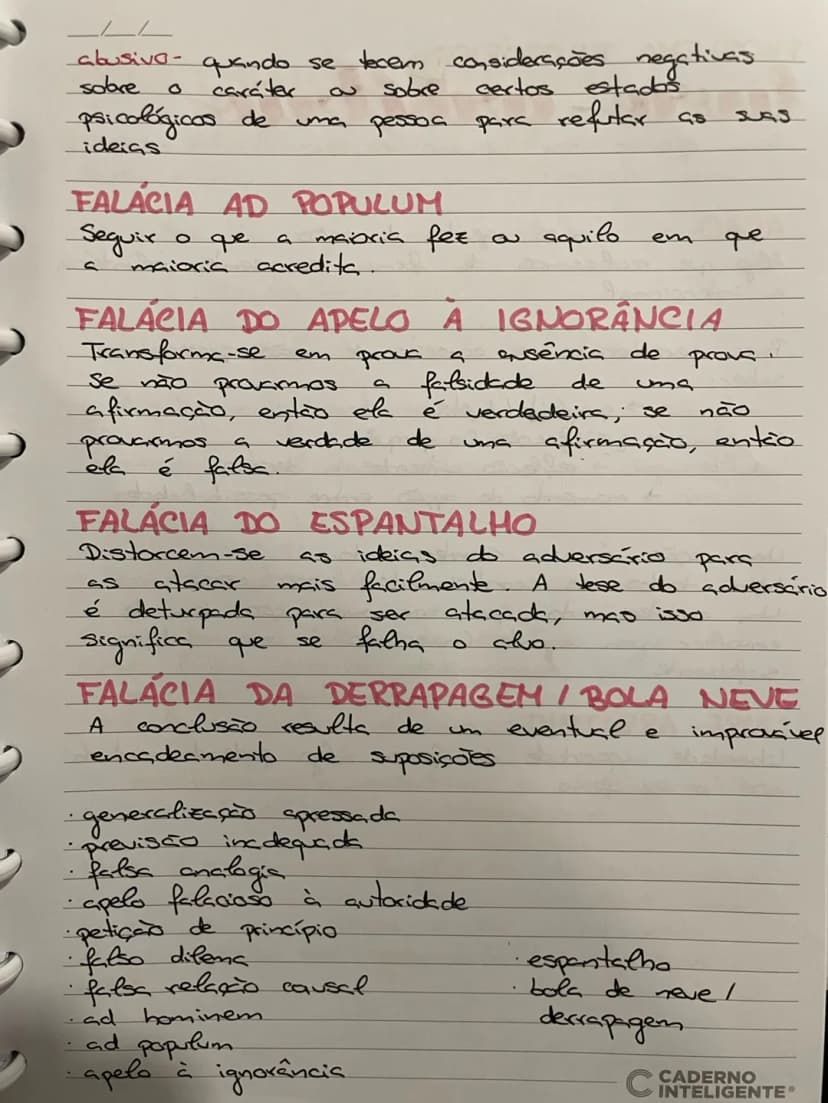 __/__/__
abusivo - quando se tecem considerações negativas
sobre o caráter ou sobre certos estados
psicológicos de uma pessoa para refutar as suas
ideias
FALÁCIA AD POPULUM
Seguir o que a maioria fez ou aquilo em que
a maioria acredita.
FALÁCIA DO APELO À IGNORÂNCIA
Transforma-se em prova a ausência de prova.
Se não provarmos a falsidade de uma
afirmação, então ela é verdadeira; se não
provarmos a verdade de uma afirmação, então
ela é falsa.
FALÁCIA DO ESPANTALHO
Distorcem-se as ideias do adversário para
as atacar mais facilmente. A tese do adversário
é deturpada para ser atacada, mas isso
significa que se falha o alvo.
FALÁCIA DA DERRAPAGEM / BOLA NEVE
A conclusão resulta de um eventual e improvável
encadeamento de suposições
· generalização apressada
· previsão inadequada
· falsa analogia
· apelo falacioso à autoridade
· petição de princípio
· falso dilema
· falsa relação causal
· ad hominem
· ad populum
· apelo à ignorância
· espantalho
· bola de neve /
derrapagem
CADERNO
INTELIGENTE®